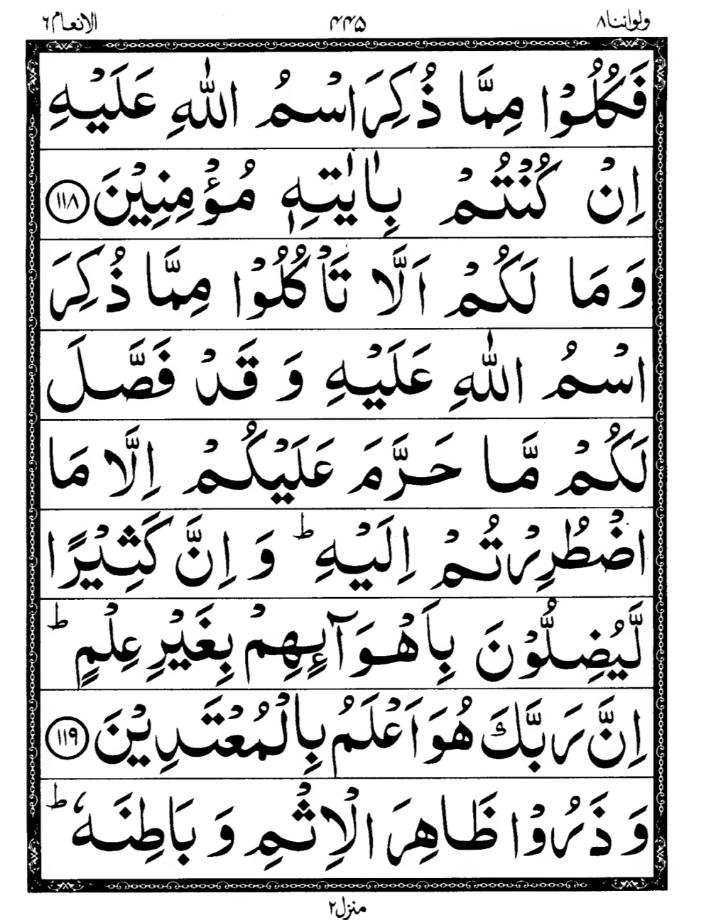 ولواننا ٨ ۴۴۵ الانعام ٦
فَكُلُوْا مِمَّا ذُكِرَ اسْمُ اللّٰهِ عَلَيْهِ
اِنْ كُنْتُمْ بِاٰيٰتِهٖ مُؤْمِنِيْنَ ﴿١١٨﴾
وَ مَا لَكُمْ اَلَّا تَاْكُلُوْا مِمَّا ذُكِرَ
اسْمُ اللّٰهِ عَلَيْهِ وَ قَدْ فَصَّلَ
لَكُمْ مَّا حَرَّمَ عَلَيْكُمْ اِلَّا مَا
اضْطُرِرْتُمْ اِلَيْهِ ؕ وَ اِنَّ كَثِيْرًا
لَّيُضِلُّوْنَ بِاَهْوَآئِهِمْ بِغَيْرِ عِلْمٍ ؕ
اِنَّ رَبَّكَ هُوَ اَعْلَمُ بِالْمُعْتَدِيْنَ ﴿١١٩﴾
وَ ذَرُوْا ظَاهِرَ الْاِثْمِ وَ بَاطِنَهٗ ؕ
منزل ٢